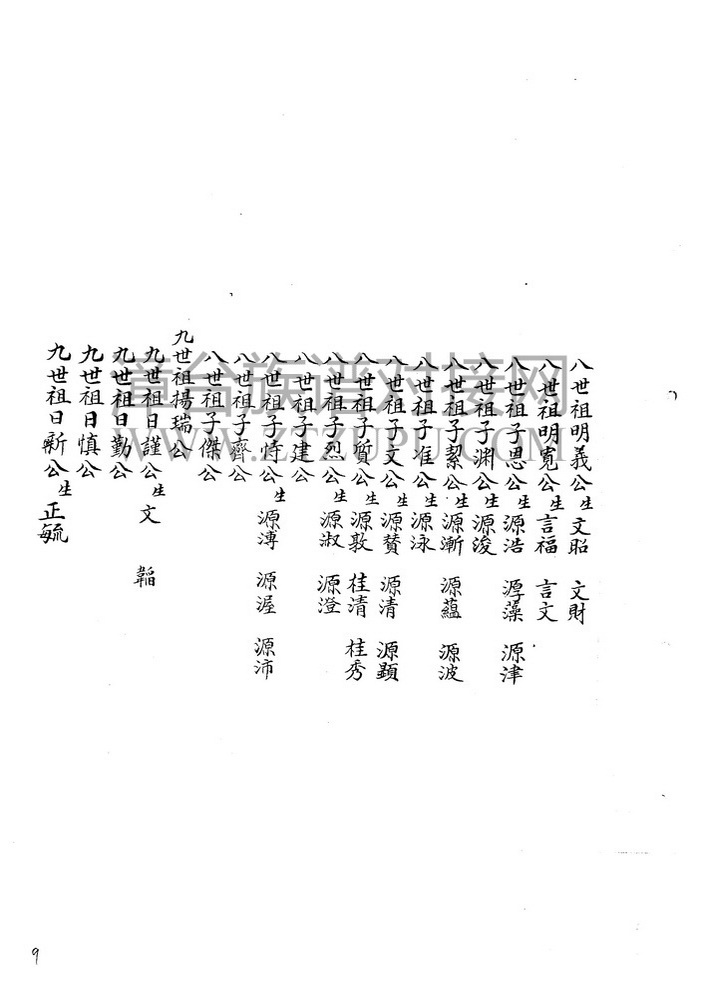 八世祖明義公生文昭 文財
八世祖明寬公生言福 言文
八世祖子思公生源浩 源藻 源津
八世祖子淵公生源浚
八世祖子絜公生源漸 源蘊 源波
八世祖子准公生源泳
八世祖子文公生源贊 源清 源顯
八世祖子質公生源敦 桂清 桂秀
八世祖子烈公生源淑 源澄
八世祖子建公
八世祖子恃公生源溥 源渥 源沛
八世祖子齊公
八世祖子傑公
九世祖揚瑞公
九世祖日謹公生文 韜
九世祖日勤公
九世祖日慎公
九世祖日新公生正毓
漳台族谱对接网
WWW.ZTZUPU.COM
9